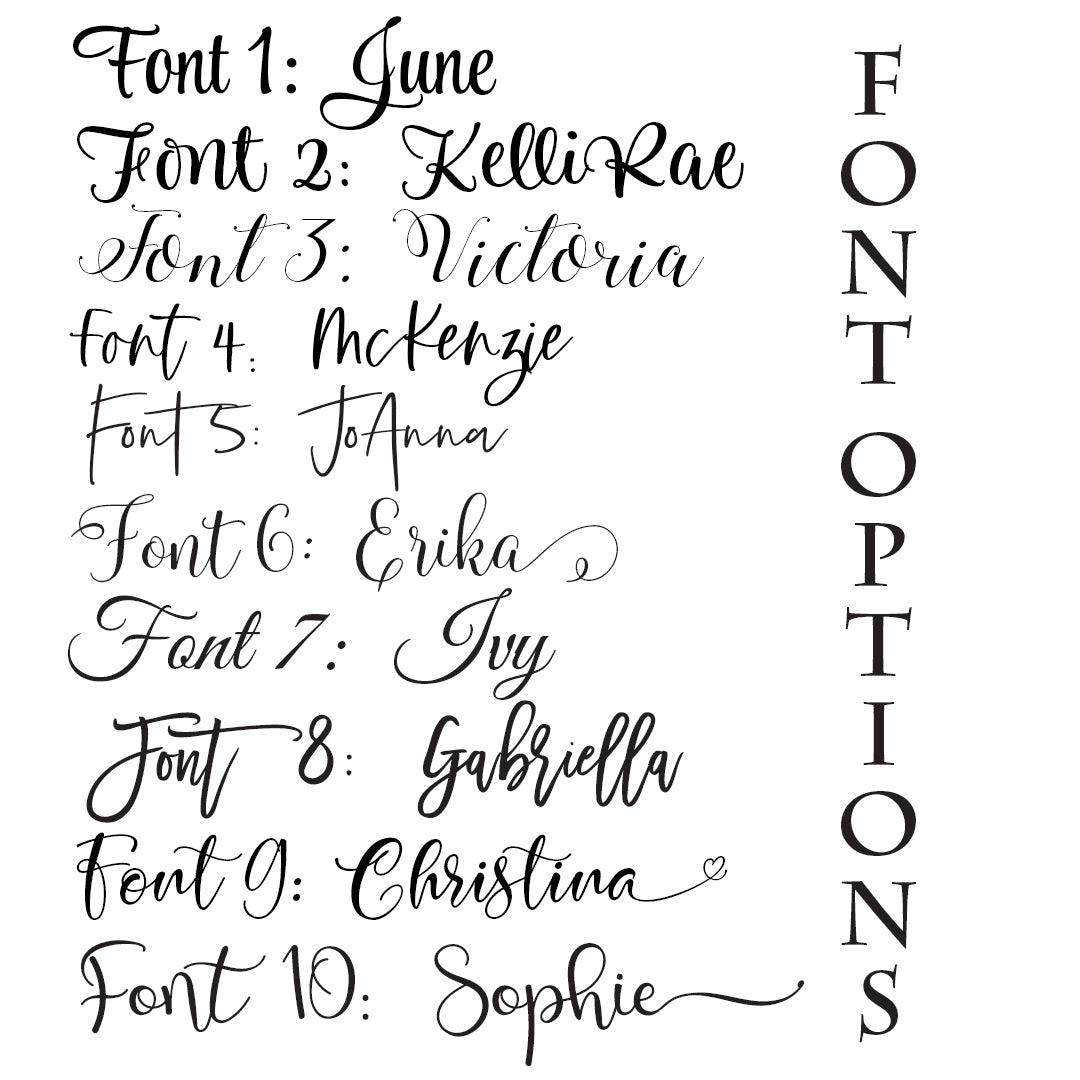 Font 1: June
Font 2: KelliRae
Font 3: Victoria
Font 4: McKenzie
Font 5: JoAnna
Font 6: Erika
Font 7: Ivy
Font 8: Gabriella
Font 9: Christina
Font 10: Sophie
FONT OPTIONS